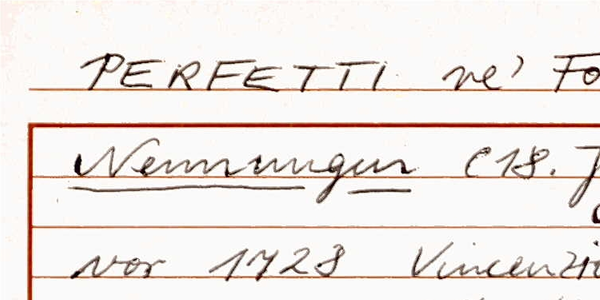 PERFETTI ne' Fo
Nennungen (18. J
vor 1728 Vincenzio